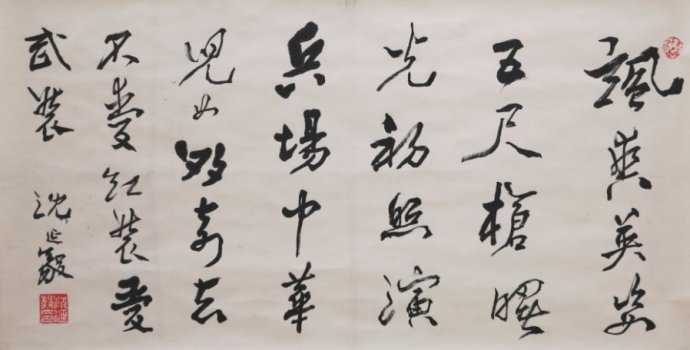 颯爽英姿
五尺槍曙
光初照演
兵場中華
兒女多奇志
不愛紅裝愛
武裝 沈延毅